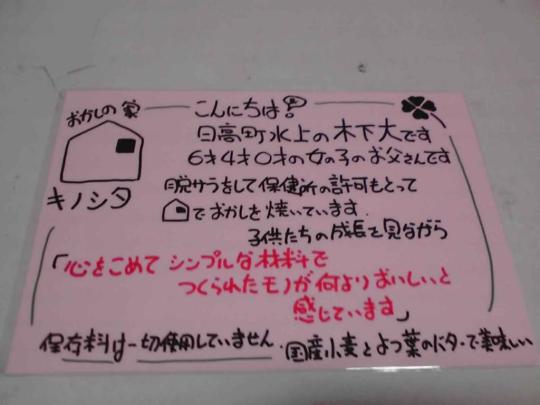 おかしの家
キノシタ
こんにちは!
日高町水上の木下大です
6才4才0才の女の子のお父さんです
脱サラをして保健所の許可もとって
でおかしを焼いています.
子供たちの成長を見ながら
「心をこめてシンプルな材料で
つくられたモノが何よりおいしいと
感じています」
保存料は一切使用していません.国産小麦とよつ葉のバターで美味しい